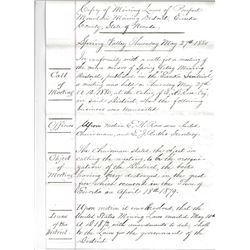 Copy of Mining Laws of Prospect
Mountain Mining District, Eureka
County, State of Nevada.
Spring Valley Thursday May 27th 1880
In conformity with a call for a meeting of
the mine owners of Spring Valley Mining
District, published in the Eureka Sentinel
a meeting was held on Thursday May 27th
A.D. 1880, at the cabin of
in said District. And the following
business was transacted
Call
of
Meeting
Officers
Upon motion C. H. Rose was elected
Chairman, and Secretary.
Object
of
Meeting
The Chairman stated the object in
calling the meeting, to be the reorgani-
zation of the District, the books
having been destroyed in the great
fire which occurred in the Town of
Eureka on April 18th 1879.
Laws
of the
District
Upon motion it was Resolved, that the
United States Mining Laws enacted May 10th
A.D. 1872, with amendments to date, shall
be the Laws for the government of the
District.